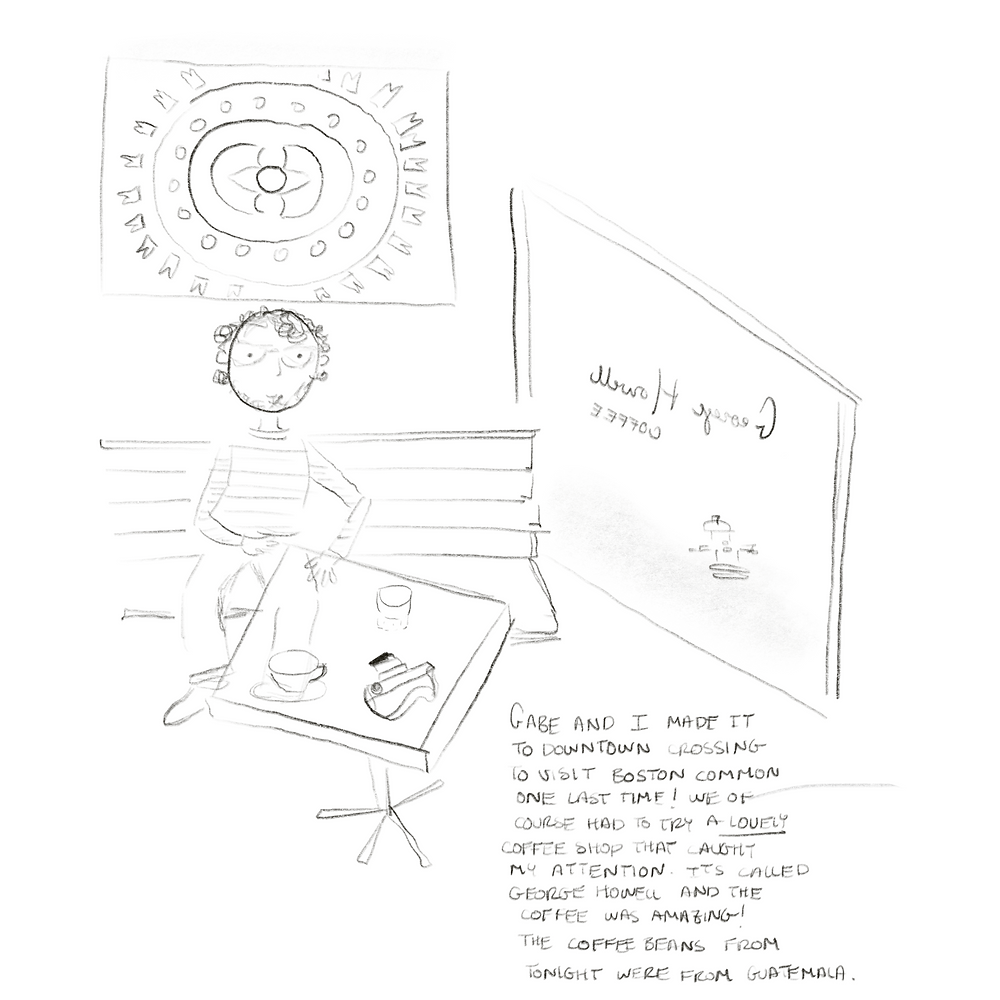 George Howell
COFFEE
GABE AND I MADE IT
TO DOWNTOWN CROSSING
TO VISIT BOSTON COMMON
ONE LAST TIME! WE OF
COURSE HAD TO TRY A LOVELY
COFFEE SHOP THAT CAUGHT
MY ATTENTION. ITS CALLED
GEORGE HOWELL AND THE
COFFEE WAS AMAZING!
THE COFFEE BEANS FROM
TONIGHT WERE FROM GUATEMALA.